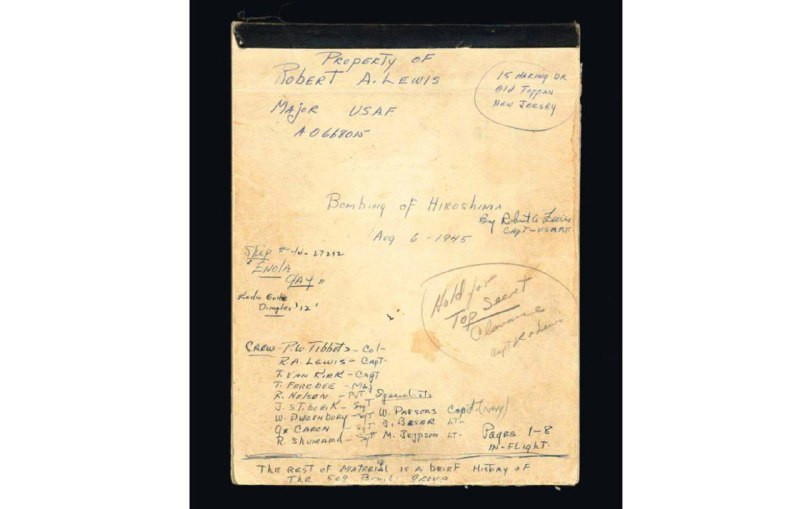 Property of
Robert A. Lewis
Major USAF
A0668015
15 Haring Dr
Old Tappan
New Jersey
Bombing of Hiroshima
By Robert A Lewis
Capt-USAAF
Aug 6-1945
Ship #
"Enola
Gay"
Radio
Dimples '12'
Hold for
Top Secret
Clearance
Capt R A Lewis
Crew - P.W Tibbets - Col-
R.A. Lewis - Capt-
T. Van Kirk - Capt
T. Ferebee - Maj
R. Nelson - Pvt
J. Stiborik - Sgt
W. Duzenbury - Sgt
G Caron - Sgt
R. Shumard - Sgt
Specialists
W. Parsons Capt (Navy)
J. Beser Lt-
M. Jeppson Lt-
Pages 1-8
in-flight.
The rest of material is a brief history of
The 509 Bomb Group